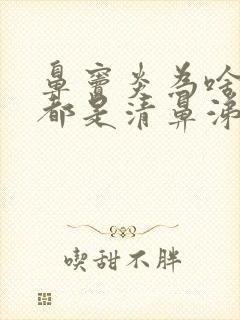 鼻窦炎为啥
都是清鼻涕
喫甜不胖